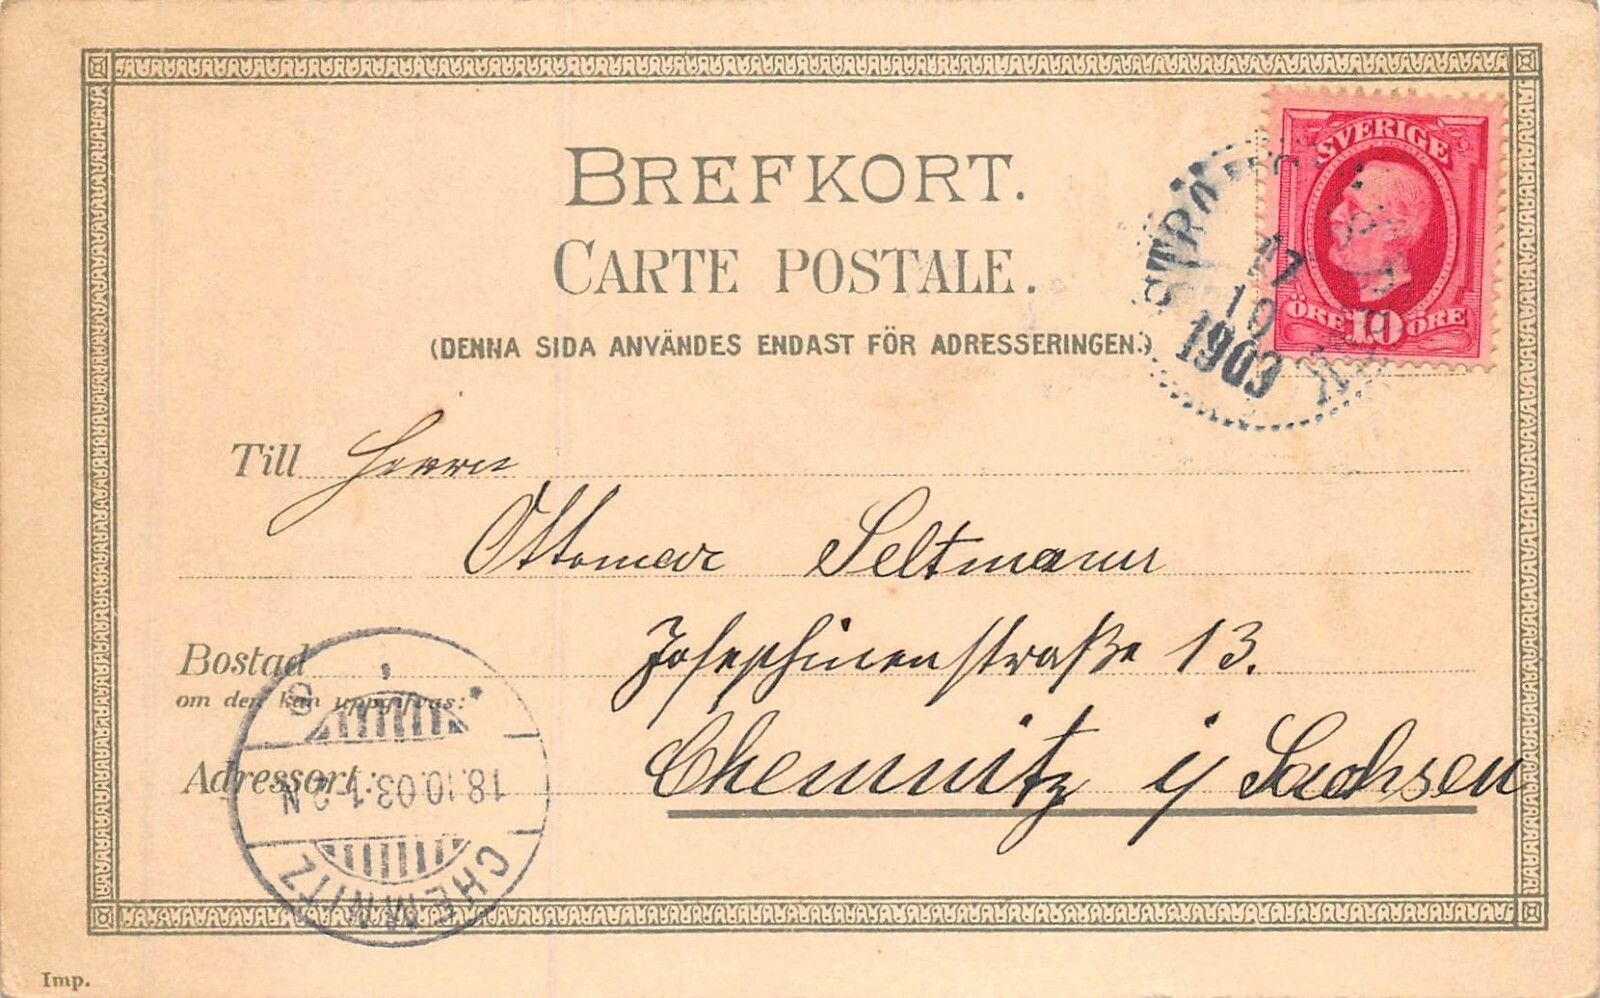 BREFKORT.
CARTE POSTALE.
(DENNA SIDA ANVÄNDES ENDAST FÖR ADRESSERINGEN.)
SVERIGE
ÖRE 10 ÖRE
17
10
1903
Till Herrn
Ottomar Seltmann
Bostad Josephinenstraße 13.
om den kan uppgifvas:
Adressort: Chemnitz i/ Sachsen
CHEMNITZ
18.10.03.1-2N
Imp.